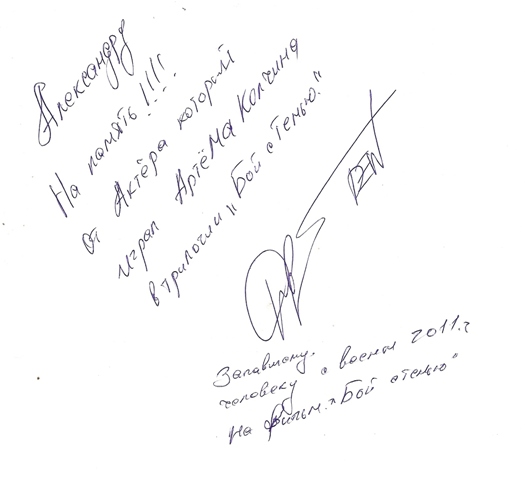 Александру
На память!!!!
от Актёра который
играл Артёма Колчина
в трилогии „Бой с Тенью."
человеку с весны 2011.г
На фильм.„Бой с тенью"